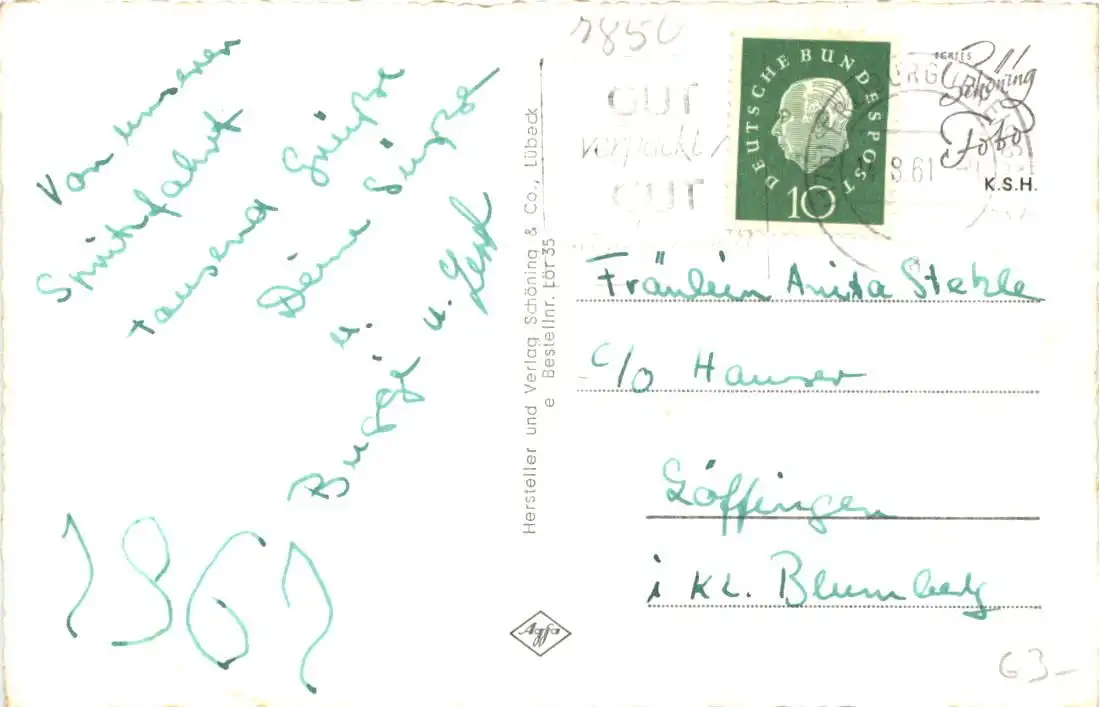 Von unserer
Spritzfahrt
tausend Grüße
Deine Süße
u.
Buggi u. Gerd
1961
Hersteller und Verlag Schöning & Co., Lübeck
e Bestellnr. Lör 35
Agfa
7850
GUT
verpackt
GUT
DEUTSCHE BUNDESPOST
10
8.61
ECHTES
Schöning
Foto
K.S.H.
Fräulein Anita Stehle
c/o Hauser
Löffingen
i Kl. Blumberg
G3-